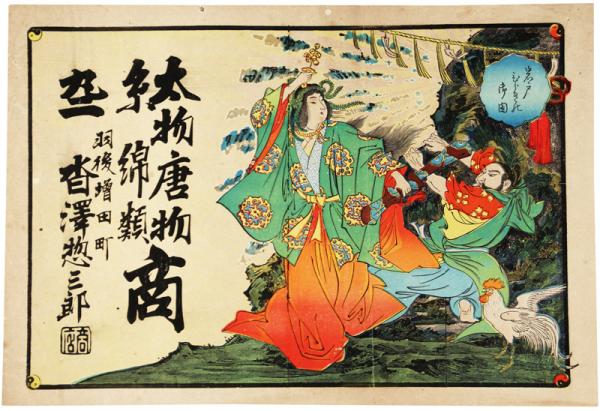 岩戸
ひらきの
太物唐物商
糸綿類
羽後增田町
沓澤惣三郎